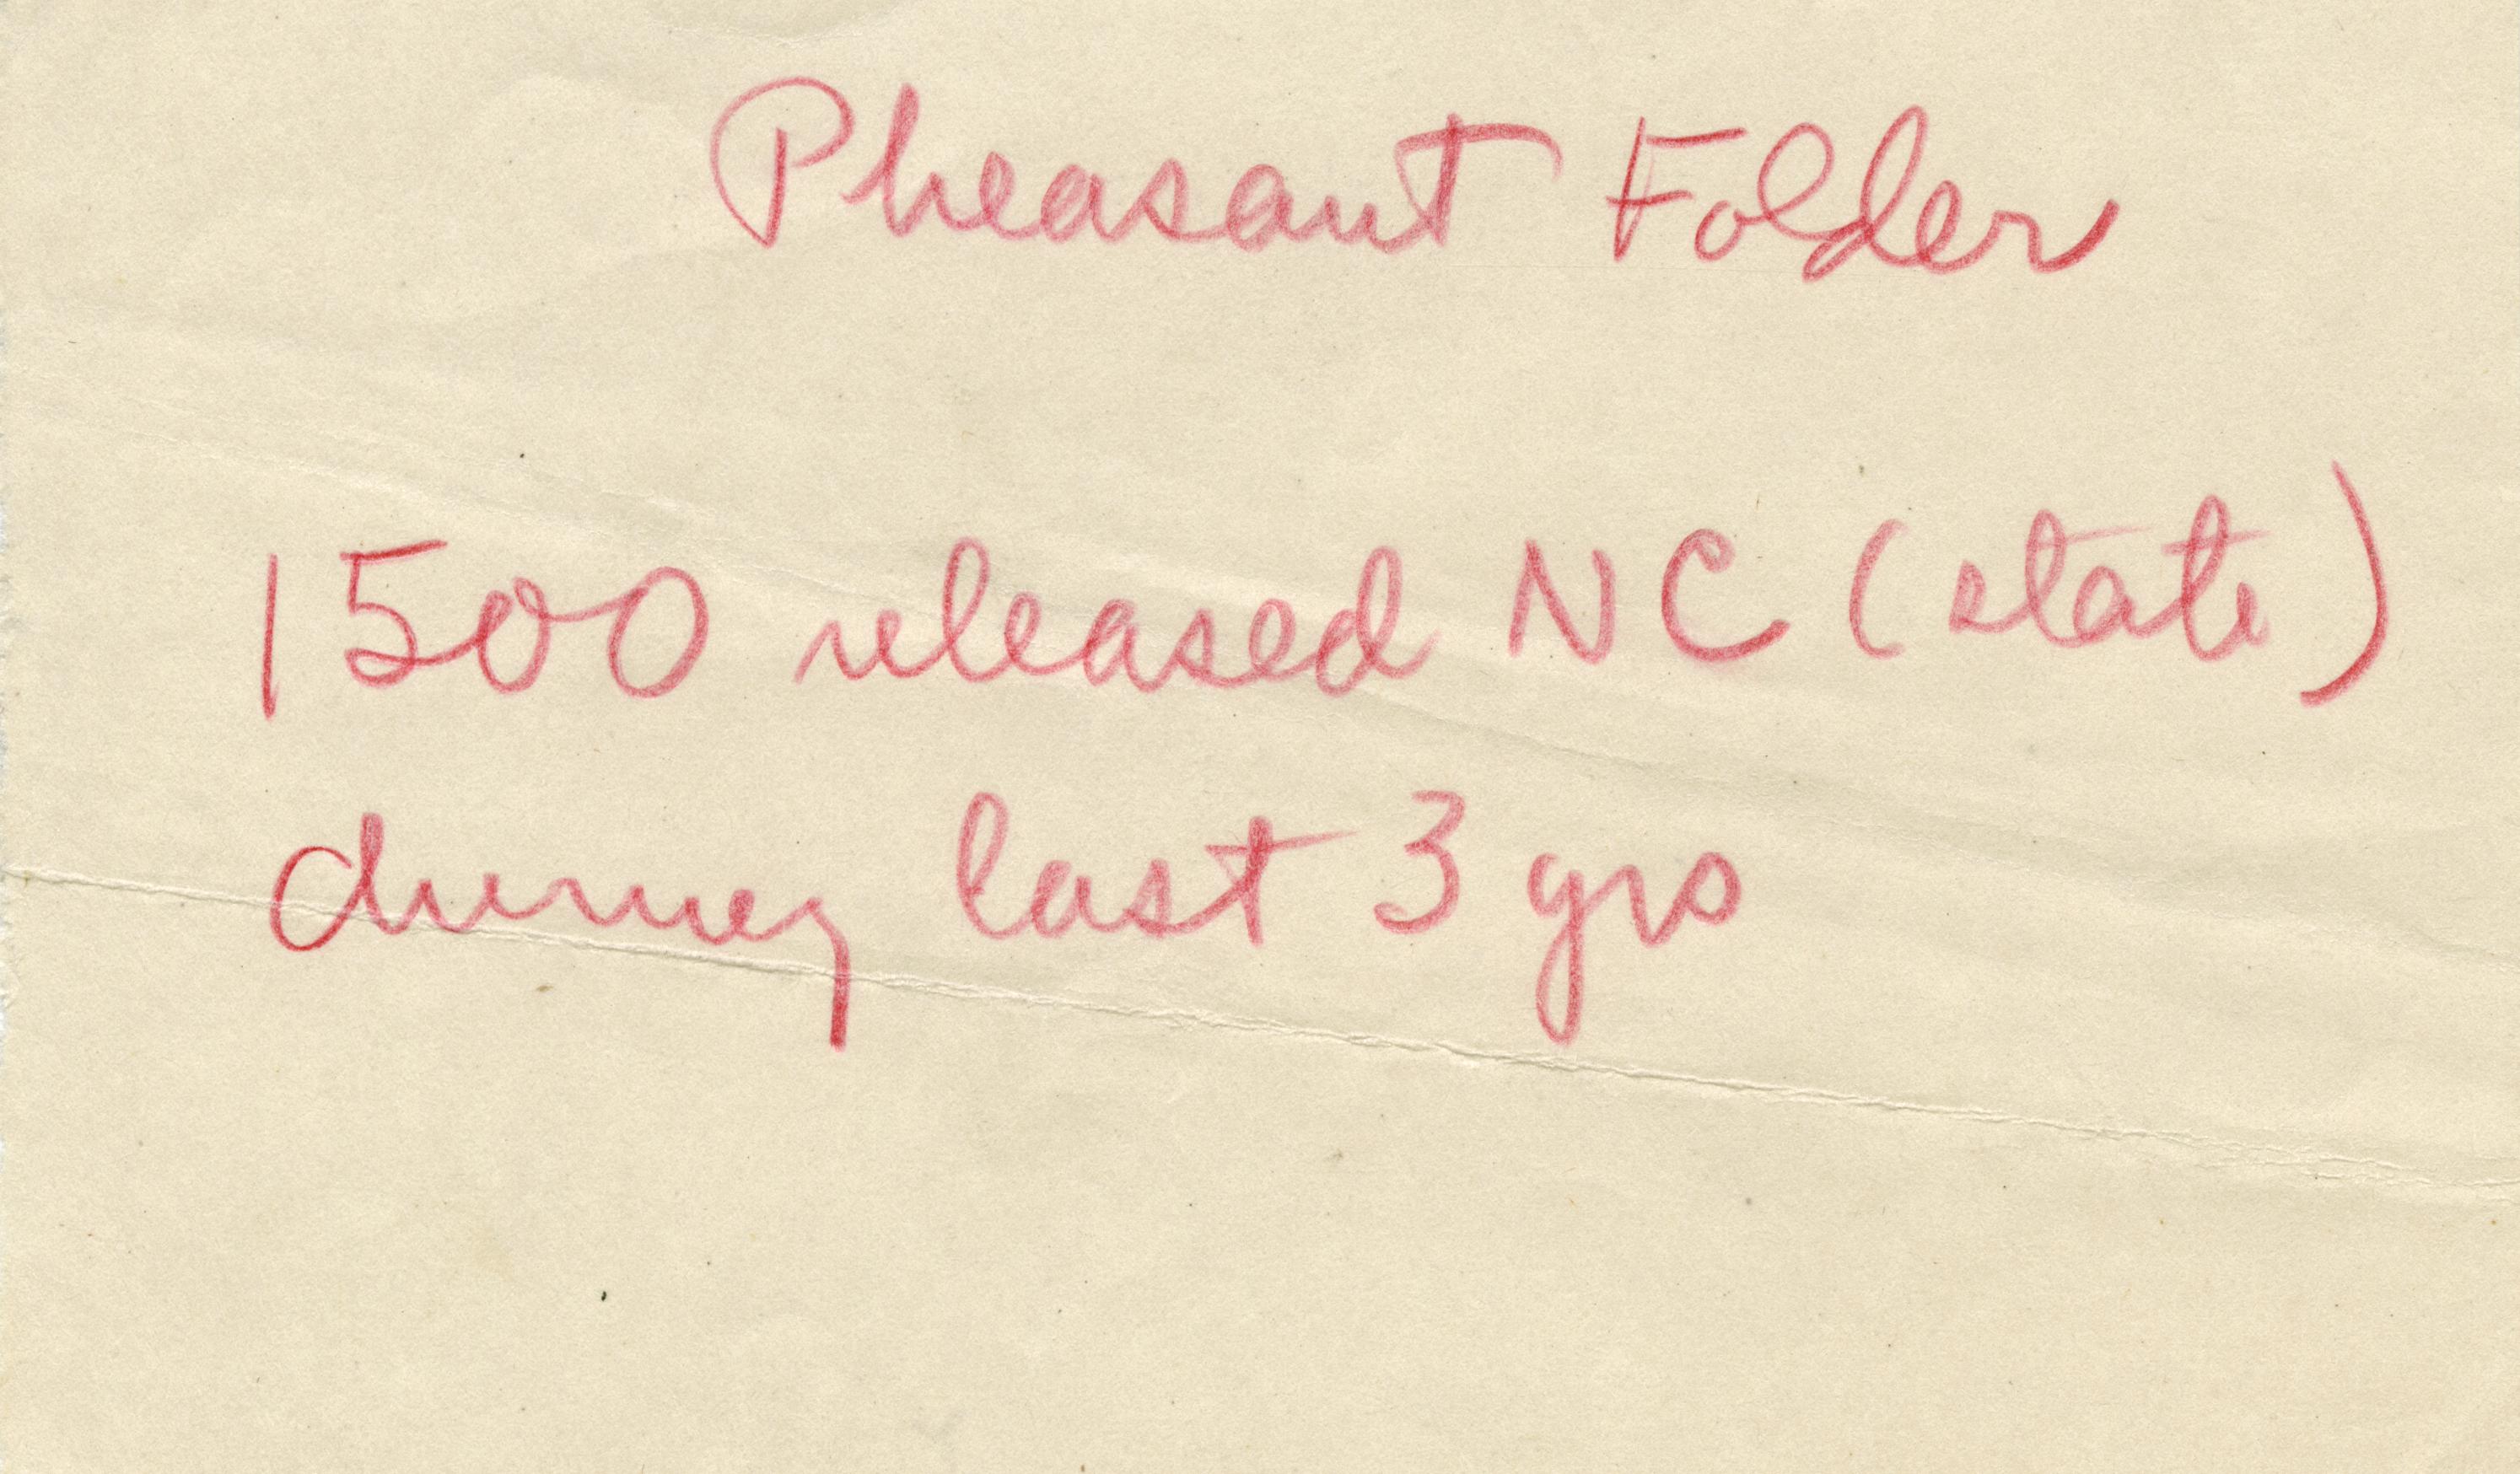 Pheasant Folder
1500 released NC (state)
during last 3 yrs